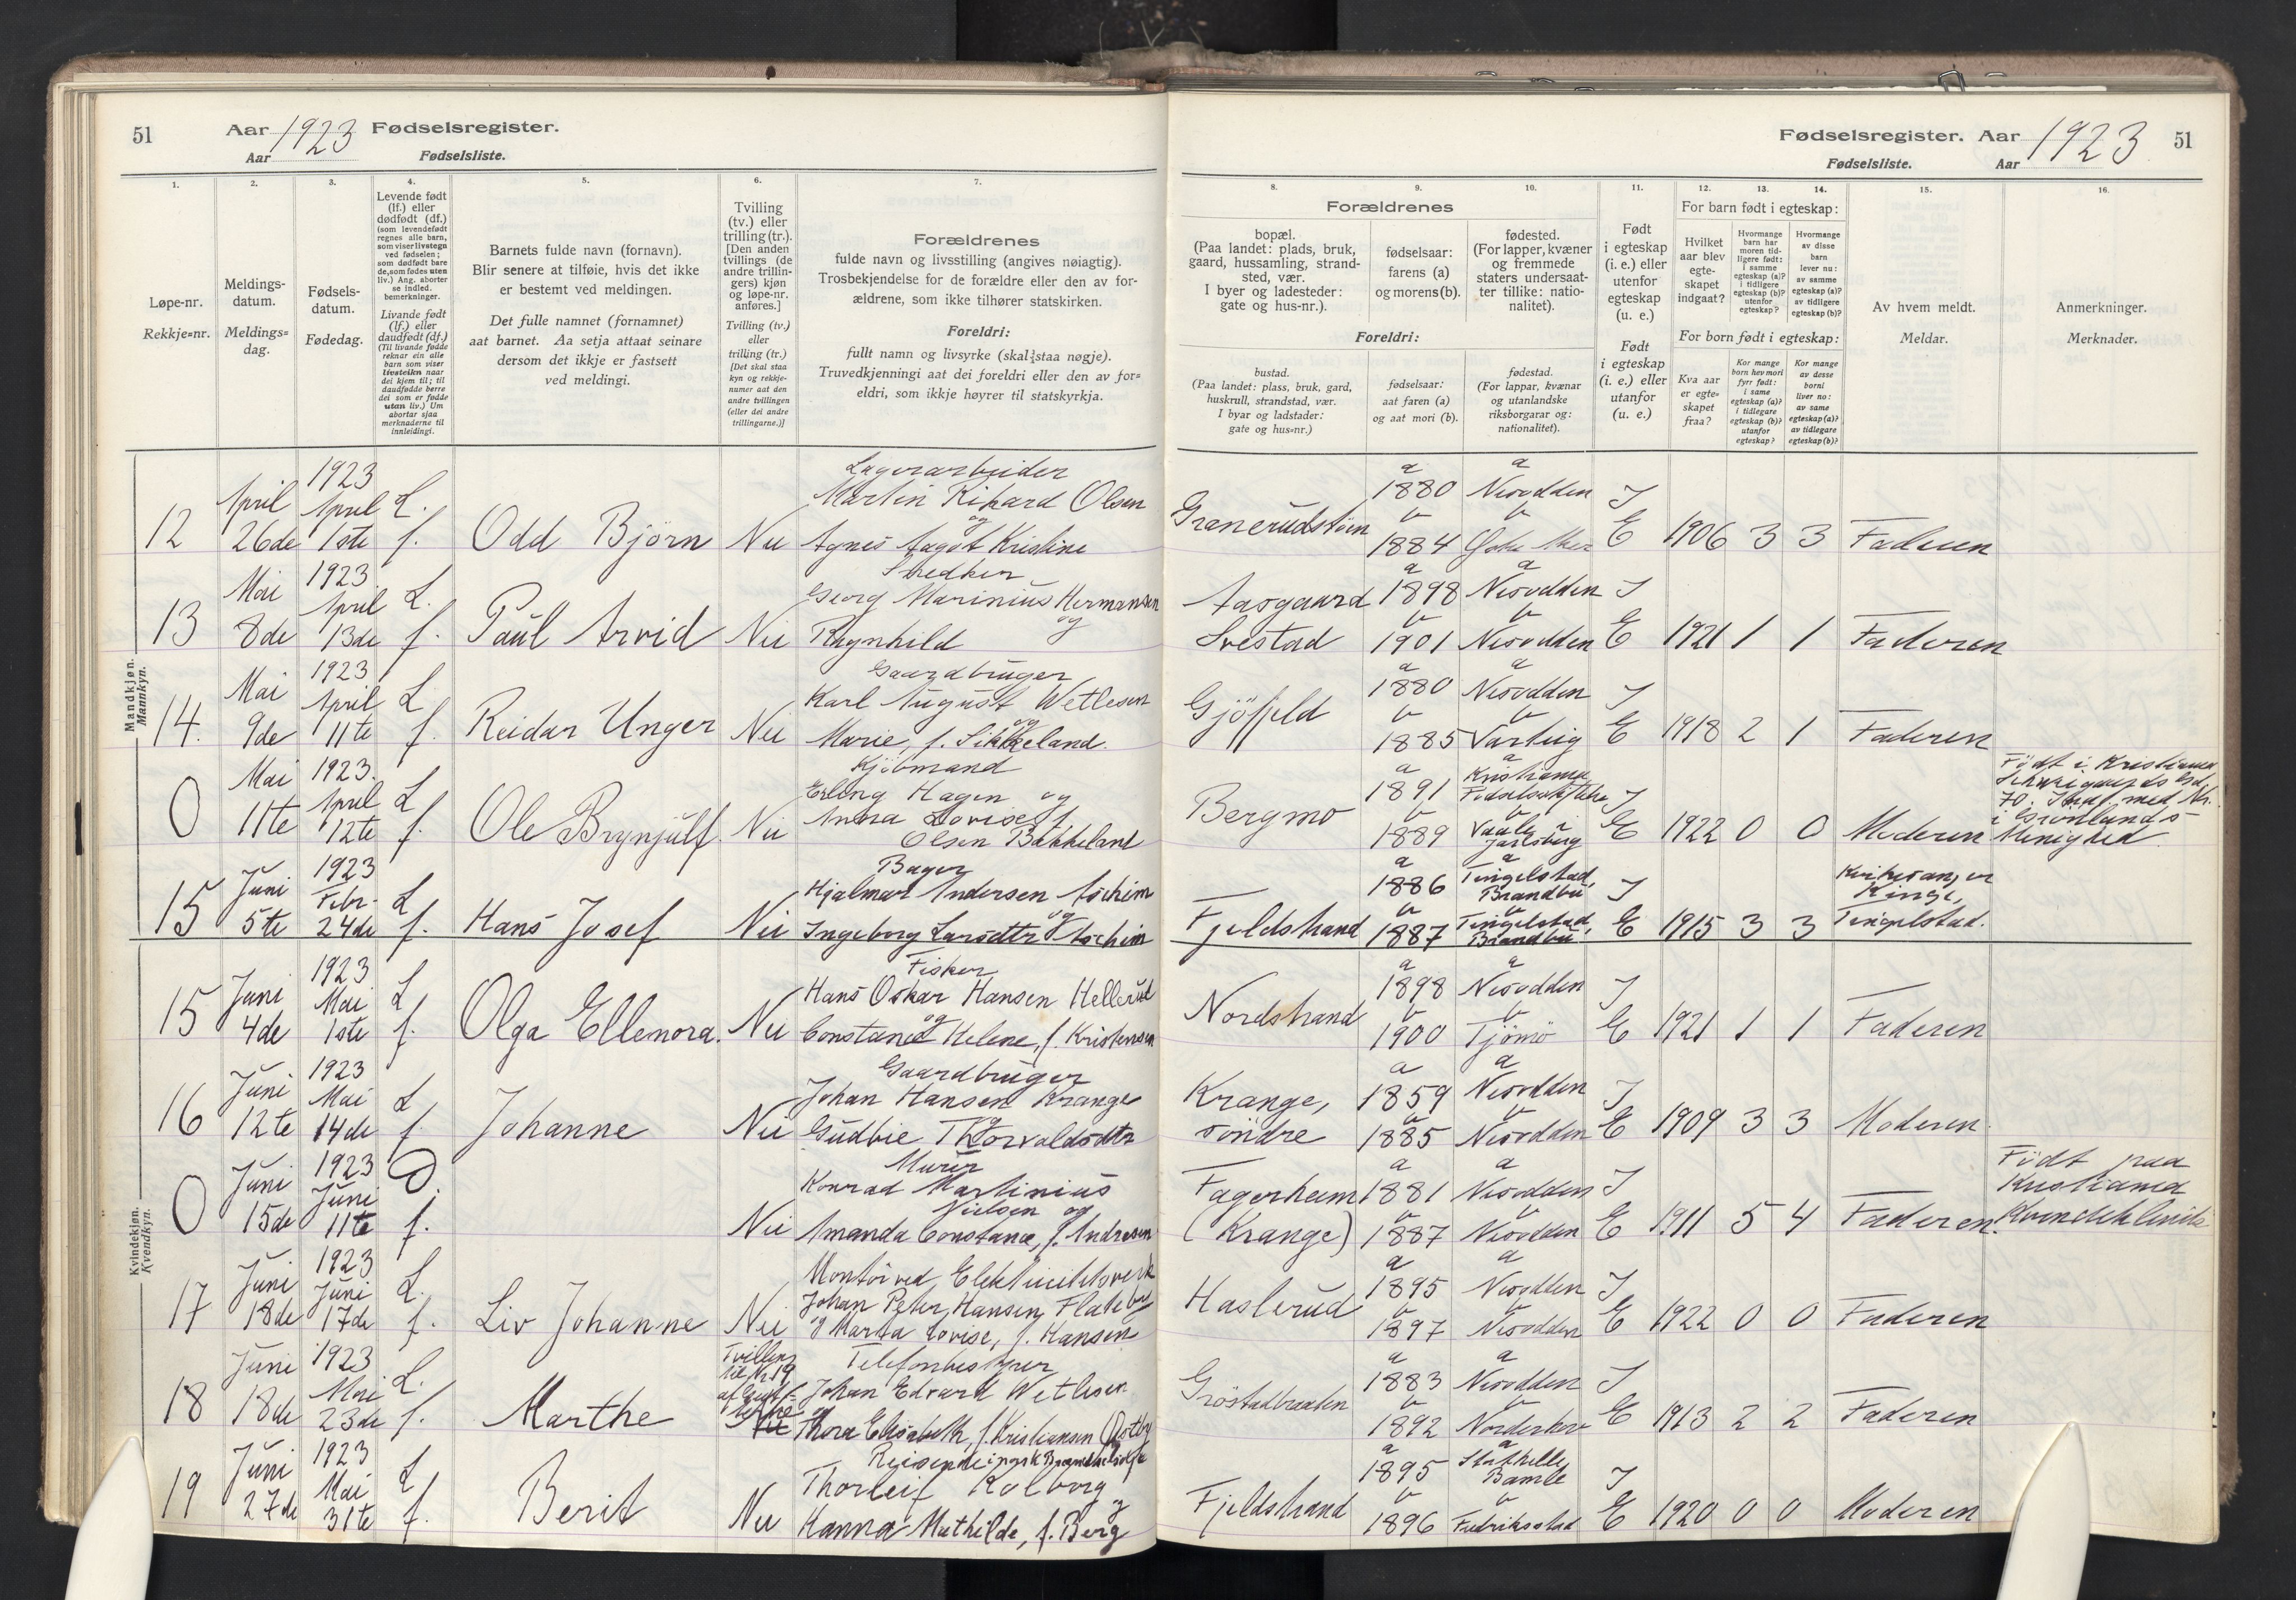 51
Aar 1923 Fødselsregister.
Aar Fødselsliste.
1. 2. 3. 4. 5. 6. 7.
Løpe-nr.
Rekkje=nr.
Meldings-
datum.
Meldings=
dag.
Fødsels-
datum.
Fødedag.
Levende født
(lf.) eller
dødfødt (df.)
(som levendefødt
regnes alle barn,
som viser livstegn
ved fødselen;
som dødfødt bare
de, som fødes uten
liv.) Ang. aborter
se indled.
bemerkninger.
Livande født
(lf.) eller
daudfødt (df.)
(Til livande fødde
reknar ein alle
barn som viser
livsteikn naar
dei kjem til; til
daudfødde berre
dei som er fødde
utan liv.) Um
abortar sjaa
merknaderne til
innleidingi.
Barnets fulde navn (fornavn).
Blir senere at tilføie, hvis det ikke
er bestemt ved meldingen.
Det fulle namnet (fornamnet)
aat barnet. Aa setja attaat seinare
dersom det ikkje er fastsett
ved meldingi.
Tvilling
(tv.) eller
trilling (tr.).
[Den anden
tvillings (de
andre trillin-
gers) kjøn
og løpe-nr.
anføres.]
Tvilling (tv.)
eller
trilling (tr.)
[Det skal staa
kyn og rekkje-
numer aat den
andre tvillingen
(eller dei andre
trillingarne.)]
Forældrenes
fulde navn og livsstilling (angives nøiagtig).
Trosbekjendelse for de forældre eller den av for-
ældrene, som ikke tilhører statskirken.
Foreldri:
fullt namn og livsyrke (skal staa nøgje).
Truvedkjenningi aat dei foreldri eller den av for=
eldri, som ikkje høyrer til statskyrkja.
Mandkjøn.
Mannkyn.
12 April 26de 1923 April 1ste L. f. Odd Bjørn Nei
Lagerarbeider
Martin Rikard Olsen
og
Agnes Aagot Kristine
13 Mai 8de 1923 April 13de L. f. Paul Arvid Nei
Snedker
Georg Marinius Hermansen
og
Ragnhild
14. Mai 9de 1923 April 11te L f. Reidar Unger Nei
Gaardbruger
Karl August Wetlesen
og
Marie, f. Sikkeland.
0 Mai 11te 1923. April 12te L f. Ole Brynjulf. Nei
Kjøbmand
Erling Hagen og
Anna Lovise f.
Olsen Bakkeland
15 Juni 5te 1923 Febr. 24de L f. Hans Josef Nei
Bager
Hjalmar Andersen Aschim
og
Ingeborg Larsdtr Aschim
Kvindekjøn.
Kvendkyn.
15 Juni 4de 1923 Mai 1ste L f. Olga Ellenora. Nei
Fisker
Hans Oskar Hansen Hellerud
og
Constance Helene, f. Kristensen
16 Juni 12te 1923 Mai 14de L f. Johanne Nei
Gaardbruger
Johan Hansen Krange
og
Gudbie Thorvaldsdtr
0 Juni 15de 1923 Juni 11te D. f. Nei
Murer
Konrad Martinius
Nielsen og
Amanda Constance, f. Andresen
17 Juni 18de 1923 Juni 17de L. f. Liv Johanne Nei
Montør ved Elektricitetsverk
Johan Peter Hansen Flateby
og Marta Lovise, f. Hansen
18 Juni 18de 1923 Mai 23de L. f. Marthe
Tvilling
til Nr 19
Telefonbestyrer
Johan Edvard Wetlesen
og
Thora Elisabeth, f. Kristiansen
19 Juni 27de 1923 Mai 31te L f. Berit Nei
Thorleif Kolborg
og
Hanna Mathilde, f. Berg
Fødselsregister. Aar 1923 51
Fødselsliste. Aar
8. 9. 10. 11. 12. 13. 14. 15. 16.
Forældrenes
bopæl.
(Paa landet: plads, bruk,
gaard, hussamling, strand-
sted, vær.
I byer og ladesteder:
gate og hus-nr.).
fødselsaar:
farens (a)
og morens (b).
fødested.
(For lapper, kvæner
og fremmede
staters undersaat-
ter tillike: natio-
nalitet).
Foreldri:
bustad.
(Paa landet: plass, bruk, gard,
huskrull, strandstad, vær.
I byar og ladstader:
gate og hus=nr.)
fødselsaar:
aat faren (a)
og aat mori (b).
fødestad.
(For lappar, kvænar
og utanlandske
riksborgarar og:
nationalitet).
Født
i egteskap
(i. e.) eller
utenfor
egteskap
(u. e.)
Født
i egteskap
(i. e.) eller
utanfor
(u. e.)
For barn født i egteskap:
Hvilket
aar blev
egte-
skapet
indgaat?
Hvormange
barn har
moren tid-
ligere født:
i samme
egteskap (a)?
i tidligere
egteskap (b)?
utenfor
egteskap?
Hvormange
av disse
barn
lever nu:
av samme
egteskap (a)?
av tidligere
egteskap (b)?
For born født i egteskap:
Kva aar
er egte=
skapet
fraa?
Kor mange
born hev mori
fyrr født:
i same
egteskap (a)?
i tidlegare
egteskap (b)?
utanfor
egteskap?
Kor mange
av desse
borni
liver no:
av same
egteskap (a)?
av tidlegare
egteskap (b)?
Av hvem meldt.
Meldar.
Anmerkninger.
Merknader.
Granerudstøen a 1880 b 1884 a Nesodden b I E 1906 3 3 Faderen
Aasgaard Svestad a 1898 b 1901 a Nesodden b Nesodden I E 1921 1 1 Faderen
Gjøfjeld a 1880 b 1885 a Nesodden b Varteig I E 1918 2 1 Faderen
Bergmo a 1891 b 1889 a Kristiania b Vaale i Jarlsberg I E 1922 0 0 Moderen
Født i Kristiania
Schweigaards Gd.
70. Indf. med Nr.
i Grønlands
Menighed.
Fjeldstrand a 1886 b 1887 a Tingelstad, Brandbu b Tingelstad, Brandbu I E 1915 3 3
Kirkesanger
Kinge,
Tingelstad.
Nordstrand a 1898 b 1900 a Nesodden b Tjømø I E 1921 1 1 Faderen
Krange, søndre a 1859 b 1885 a Nesodden b Nesodden I E 1909 3 3 Moderen.
Fagerheim (Krange) a 1881 b 1887 a Nesodden b Nesodden I E 1911 5 4 Faderen.
Født paa
Kristiania
Kvindeklinik
Haslerud a 1895 b 1897 a Nesodden b Nesodden I E 1922 0 0 Faderen
Grøstadbraaten a 1883 b 1892 a Nesodden b Norderhov I E 1913 2 2 Faderen
Fjeldstrand a 1895 b 1896 a Stathelle Bamle b Fredriksstad I E 1920 0 0 Moderen